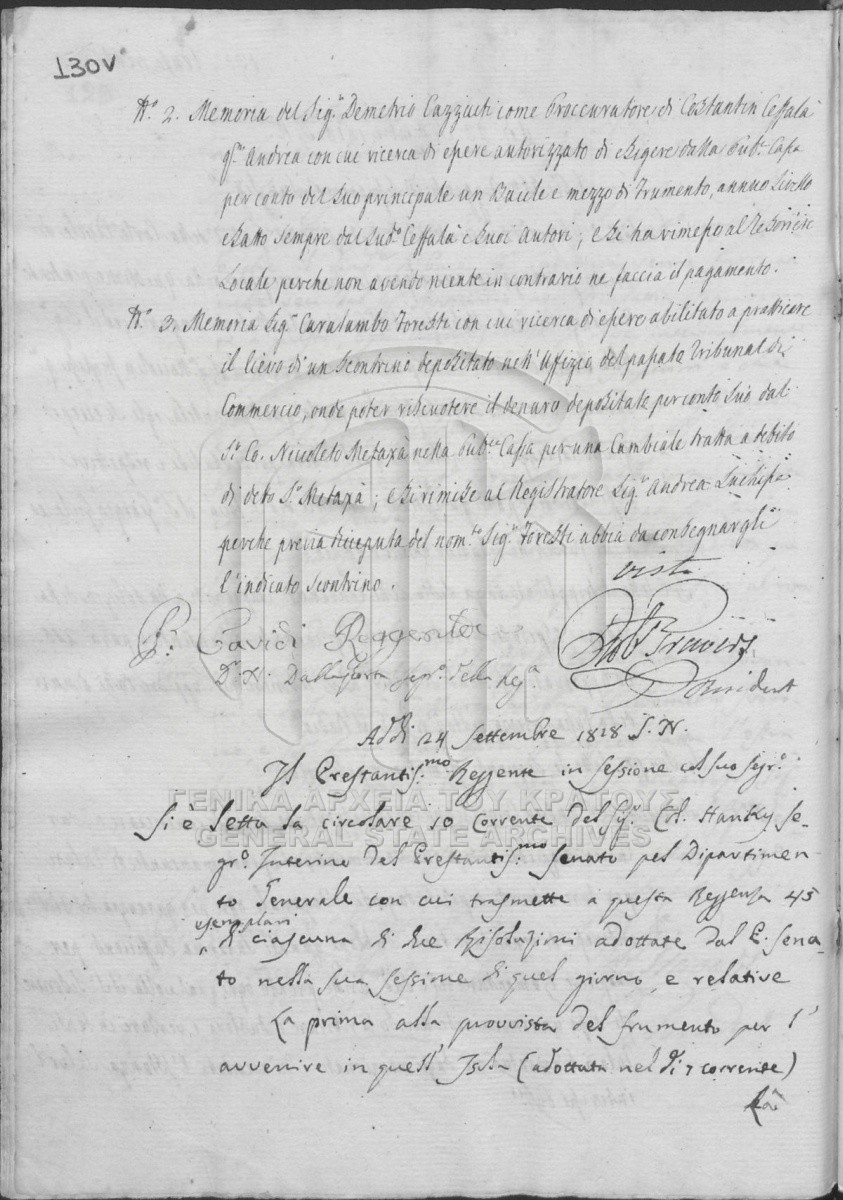 130v
N.º 2. Memoria del Sig.r Demetrio Cazzaiti come Proccuratore di Costantin Ceffalà
q.m Andrea con cui ricerca di essere autorizzato di esigere dalla Pub.a Cassa
per conto del suo principale un Bacile e mezzo di Frumento, annuo Livello
esatto sempre dal sud.o Ceffalà e suoi Autori; e si ha rimesso al Tesoriere
Locale perche non avendo niente in contrario ne faccia il pagamento.
N.º 3. Memoria Sig.r Caralambo Foresti con cui ricerca di essere abilitato a pratticare
il lievo di un scontrino depositato nell' Uffizio del passato Tribunal di
Commercio, onde poter riscuotere il denaro depositato per conto suo dal
S.r Co. Niccoleto Metaxà nella Pub.ca Cassa per una Cambiale tratta a debito
di detto S.r Metaxà; e si rimise al Registratore Sig.r Andrea
perche previa riceputa del nom.to Sig.r Foresti abbia da consegnargli
l'indicato scontrino.
visto
P. Cavidi Reggente
Travers
D.r N. Dallaporta Segr.o della Reg.a
President
Addi 24 Settembre 1818 S. N.
Il Prestantis.mo Reggente in sessione col suo Segr.o
ΓΕΝΙΚΑ ΑΡΧΕΙΑ ΤΟΥ ΚΡΑΤΟΥΣ
Si è letta la circolare 10 corrente del Sig.r Col. Hanky Se-
GENERAL STATE ARCHIVES
gr.o Interino del Prestantis.mo Senato pel Dipartimen-
to Generale con cui trasmette a questa Reggenza 45
esemplari
di ciascuna di due Risoluzioni adottate dal P. Sena-
to nella sua sessione di quel giorno, e relative
La prima alla provvista del frumento per l'
avvenire in quest' Isola (adottata nel dì 7 corrente)
La